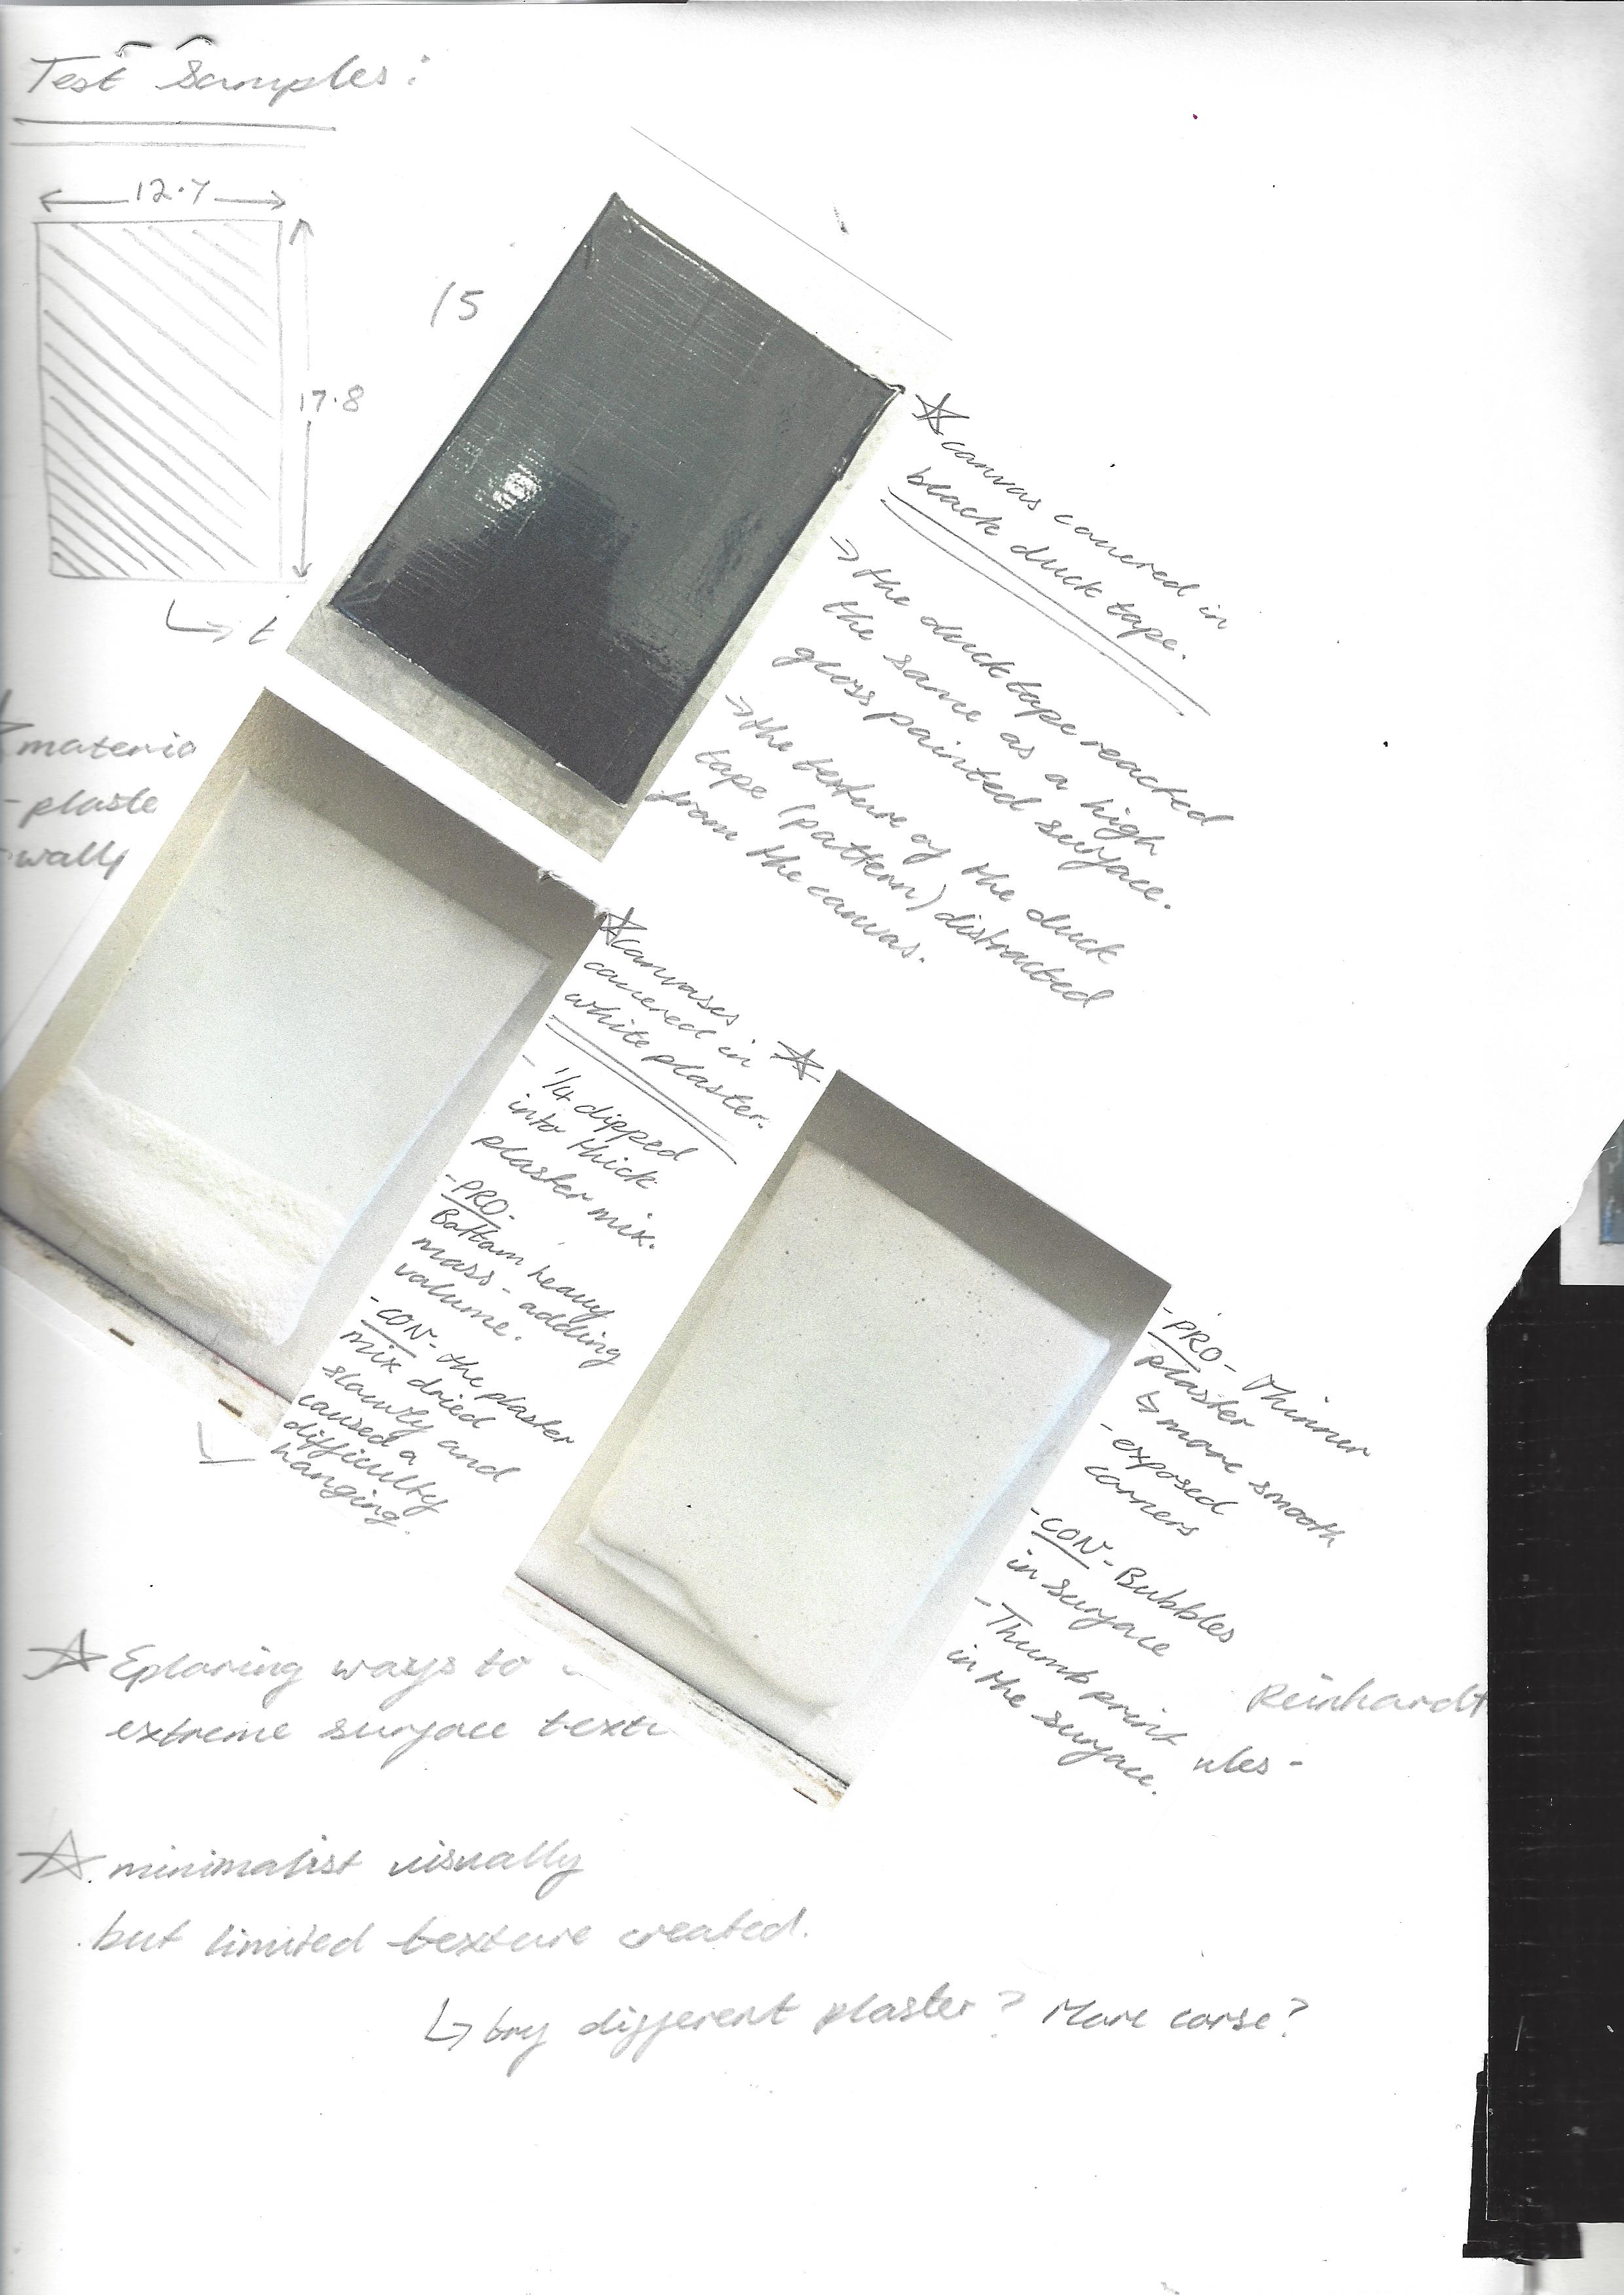 Test Samples:
12.7
17.8
15
materia
- plaste
- wally
☆ canvas covered in
black duck tape.
→ the duck tape reacted
the same as a high
gloss painted surface.
→ the texture of the duck
tape (pattern) distracted
from the canvas.
☆ canvases
covered in ☆
white plaster.
- 1/4 dipped
into thick
plaster mix.
- PRO -
Bottom heavy
mass - adding
volume.
- CON - the plaster
mix dried
slowly and
caused a
difficulty
hanging.
- PRO - Thinner
plaster
↳ more smooth
- exposed
corners
- CON - Bubbles
in surface
- Thumb print
in the surface.
☆ Eploring ways to
extreme surface textu
Reinhardt
ules -
☆ minimalist visually
but limited texture created.
↳ try different plaster? More corse?